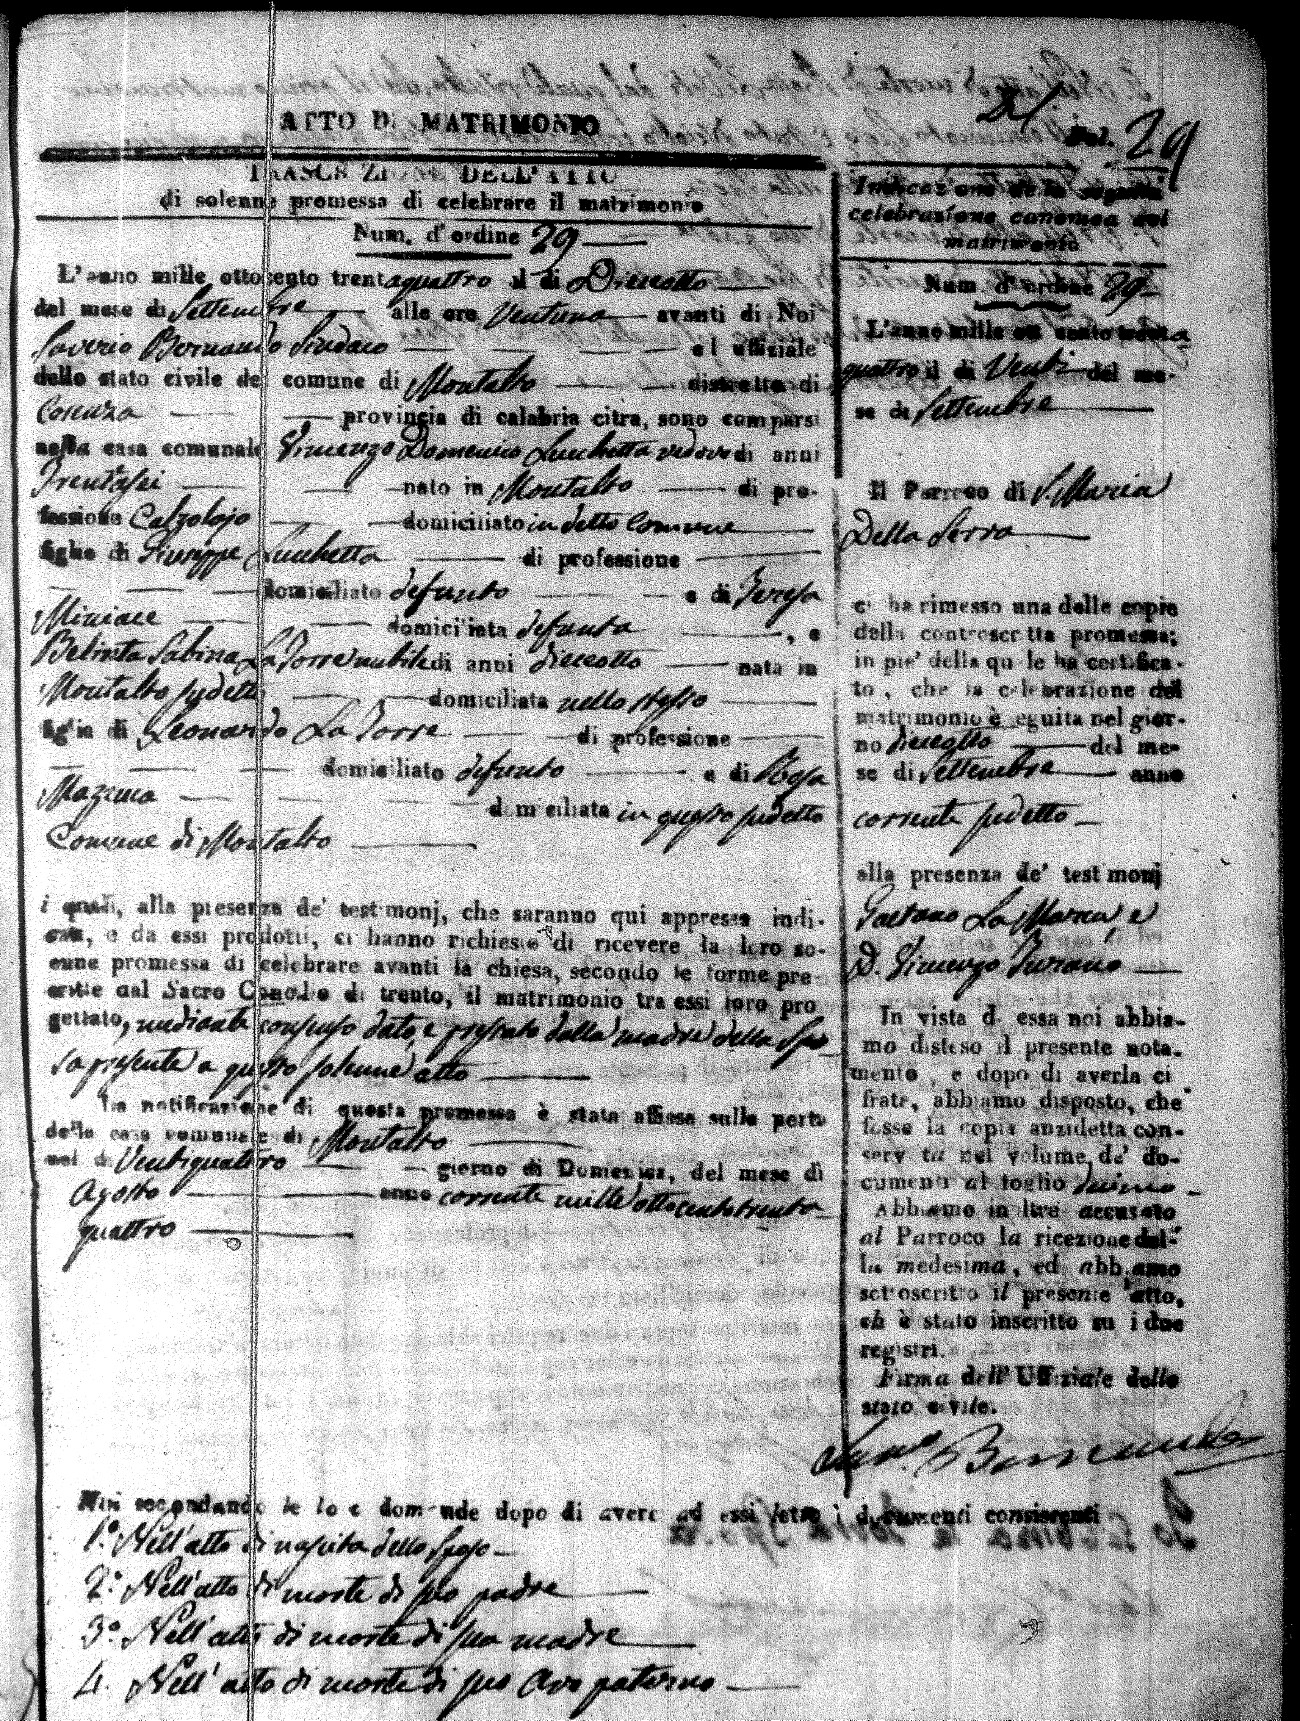 ATTO DI MATRIMONIO
Fol. 29
TRASCRIZIONE DELL'ATTO
di solenne promessa di celebrare il matrimonio
Num. d'ordine 29
L'anno mille ottocento trentaquattro il di Dieciotto
del mese di Settembre alle ore Ventuna avanti di Noi
Saverio Bernaudo Sindaco ed uffiziale
dello stato civile del comune di Montalto distretto di
Cosenza provincia di calabria citra, sono comparsi
nella casa comunale Vincenzo Domenico Lucchetta vedovo di anni
Trentasei nato in Montalto di pro-
fessione Calzolajo domiciliato in detto Comune
figlio di Giuseppe Lucchetta di professione
domiciliato defunto e di Teresa
Miniace domiciliata defunta , e
Sabina La Torre nubile di anni dieciotto nata in
Montalto sudetto domiciliata nello stesso
figlia di Leonardo La Torre di professione
domiciliato defunto e di Rosa
domiciliata in questo sudetto
Comune di Montalto
i quali, alla presenza de' testimonj, che saranno qui appresso indi-
cati, e da essi prodotti, ci hanno richiesto di ricevere la loro so-
enne promessa di celebrare avanti la chiesa, secondo le forme pre-
critte dal Sacro Concilio di trento, il matrimonio tra essi loro pro
gettato, mediante consenso dato, e prestato dalla madre della Spo
sa presente a questo solenne atto
La notificazione di questa promessa è stata affissa sulla porta
della casa comunale di Montalto
nel di Ventiquattro giorno di Domenica, del mese di
Agosto anno corrente mille ottocento trenta
quattro
Noi secondando le loro domande dopo di avere ad essi letto i documenti consistenti
1.° Nell'atto di nascita dello Sposo
2.° Nell'atto di morte di suo padre
3.° Nell'atto di morte di sua madre
4. Nell'atto di morte di suo Avo paterno
Indicazione della seguita
celebrazione canonica del
matrimonio
Num. d'ordine 29
L'anno mille ott cento trenta
quattro il di Venti del me-
se di Settembre
Il Parroco di S. Maria
Della Serra
ci ha rimesso una delle copie
della controscritta promessa;
in pie' della quale ha certifica-
to, che la celebrazione del
matrimonio è seguita nel gior-
no dieciotto del me-
se di Settembre anno
corrente sudetto
alla presenza de' testimonj
Gaetano La Marca, e
D. Vincenzo Turano
In vista di essa noi abbia-
mo disteso il presente nota-
mento, e dopo di averla ci
frata, abbiamo disposto, che
fosse la copia anzidetta con-
servata nel volume de' do-
cumenti al foglio
Abbiamo inoltre accusato
al Parroco la ricezione del-
la medesima, ed abbiamo
sottoscritto il presente atto,
ch è stato inscritto su i due
registri.
Firma dell'Uffiziale dello
stato civile.
Sav.° Bernaudo